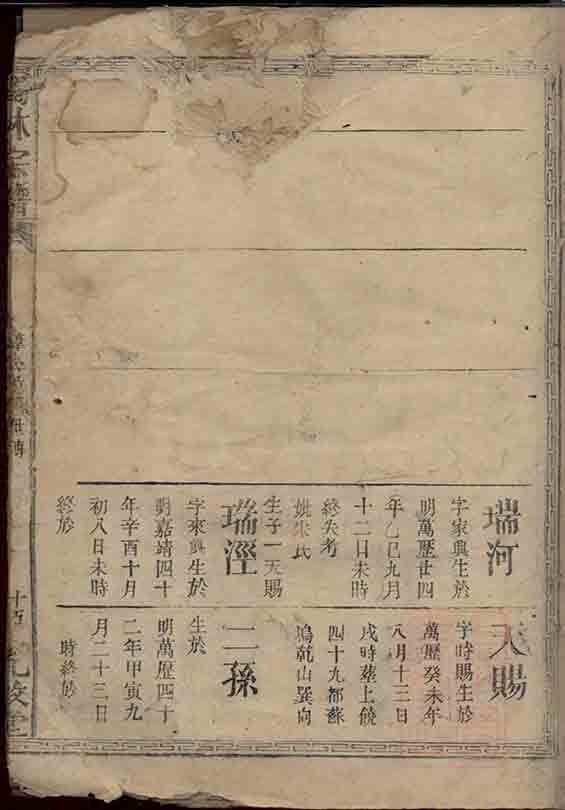 瑞河
字家興生於
明萬歷廿四
年乙巳九月
十二日未時
終失考
妣朱氏
生子一天賜
瑞溼
字來興生於
明嘉靖四十
年辛酉十月
初八日未時
終於
天賜
字時賜生於
萬歷癸未年
八月十三日
戌時塟上饒
四十九都蘇
塢乾山巽向
二孫
生於
明萬歷四十
二年甲寅九
月二十三日
時終於
林宗譜